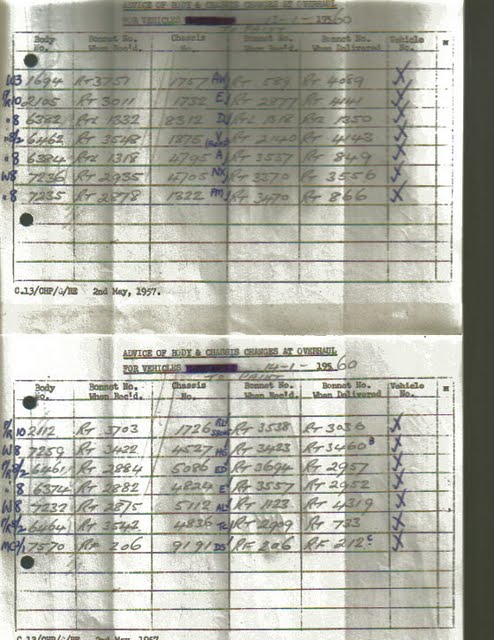 ADVICE OF BODY & CHASSIS CHANGES AT OVERHAUL
FOR VEHICLES 13-1- 1960
Body No. Bonnet No. When Rec'd. Chassis No. Bonnet No. When Rec'd. Bonnet No. When Delivered Vehicle No.
W3 1694 RT 3751 1757 AW RT 589 RT 4089 X
2105 RT 3011 1732 E RT 2877 RT 4141 X
8 6382 RTL 1332 8312 D RTL 1318 RTL 1350 X
8/2 6462 RT 3548 1875 V RT 2140 RT 4143 X
8 6384 RTL 1318 4795 A RT 3537 RT 849 X
W8 7236 RT 2935 4705 NX RT 3370 RT 3556 X
8 7235 RT 2878 1322 PM RT 3470 RT 866 X
C.13/CHP/G/BE 2nd May, 1957.
ADVICE OF BODY & CHASSIS CHANGES AT OVERHAUL
FOR VEHICLES 14-1- 1960
Body No. Bonnet No. When Rec'd. Chassis No. Bonnet No. When Rec'd. Bonnet No. When Delivered Vehicle No.
10 2112 RT 3703 1726 RT 3538 RT 3036 X
W8 7259 RT 3422 4527 HG RT 3423 RT 3460 B X
8/2 6461 RT 2884 5086 ED RT 3694 RT 2957 X
8 6374 RT 2882 4824 E RT 3557 RT 2952 X
W8 7232 RT 2875 5112 AL RT 1123 RT 4319 X
8/2 6464 RT 3542 4836 TC RT 2909 RT 733 X
MC2/1 7570 RF 206 9191 DS RF 206 RF 212 C X
C.13/CHP/G/BE 2nd May, 1957